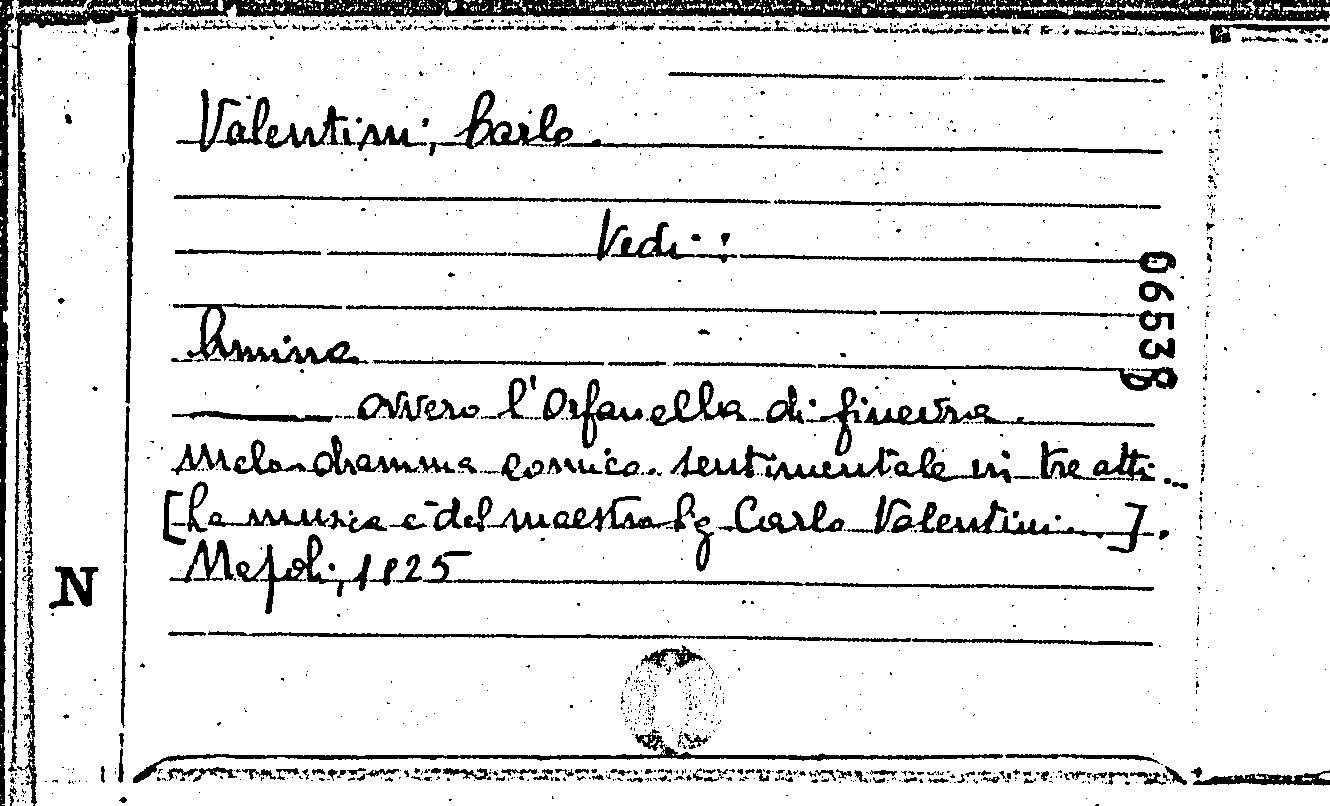 Valentini, Carlo.
Vedi:
Amina
ovvero l'Orfanella di Ginevra.
Melo-dramma comico-sentimentale in tre atti...
[La musica è del maestro Sig Carlo Valentini...].
Napoli, 1825
66538
N